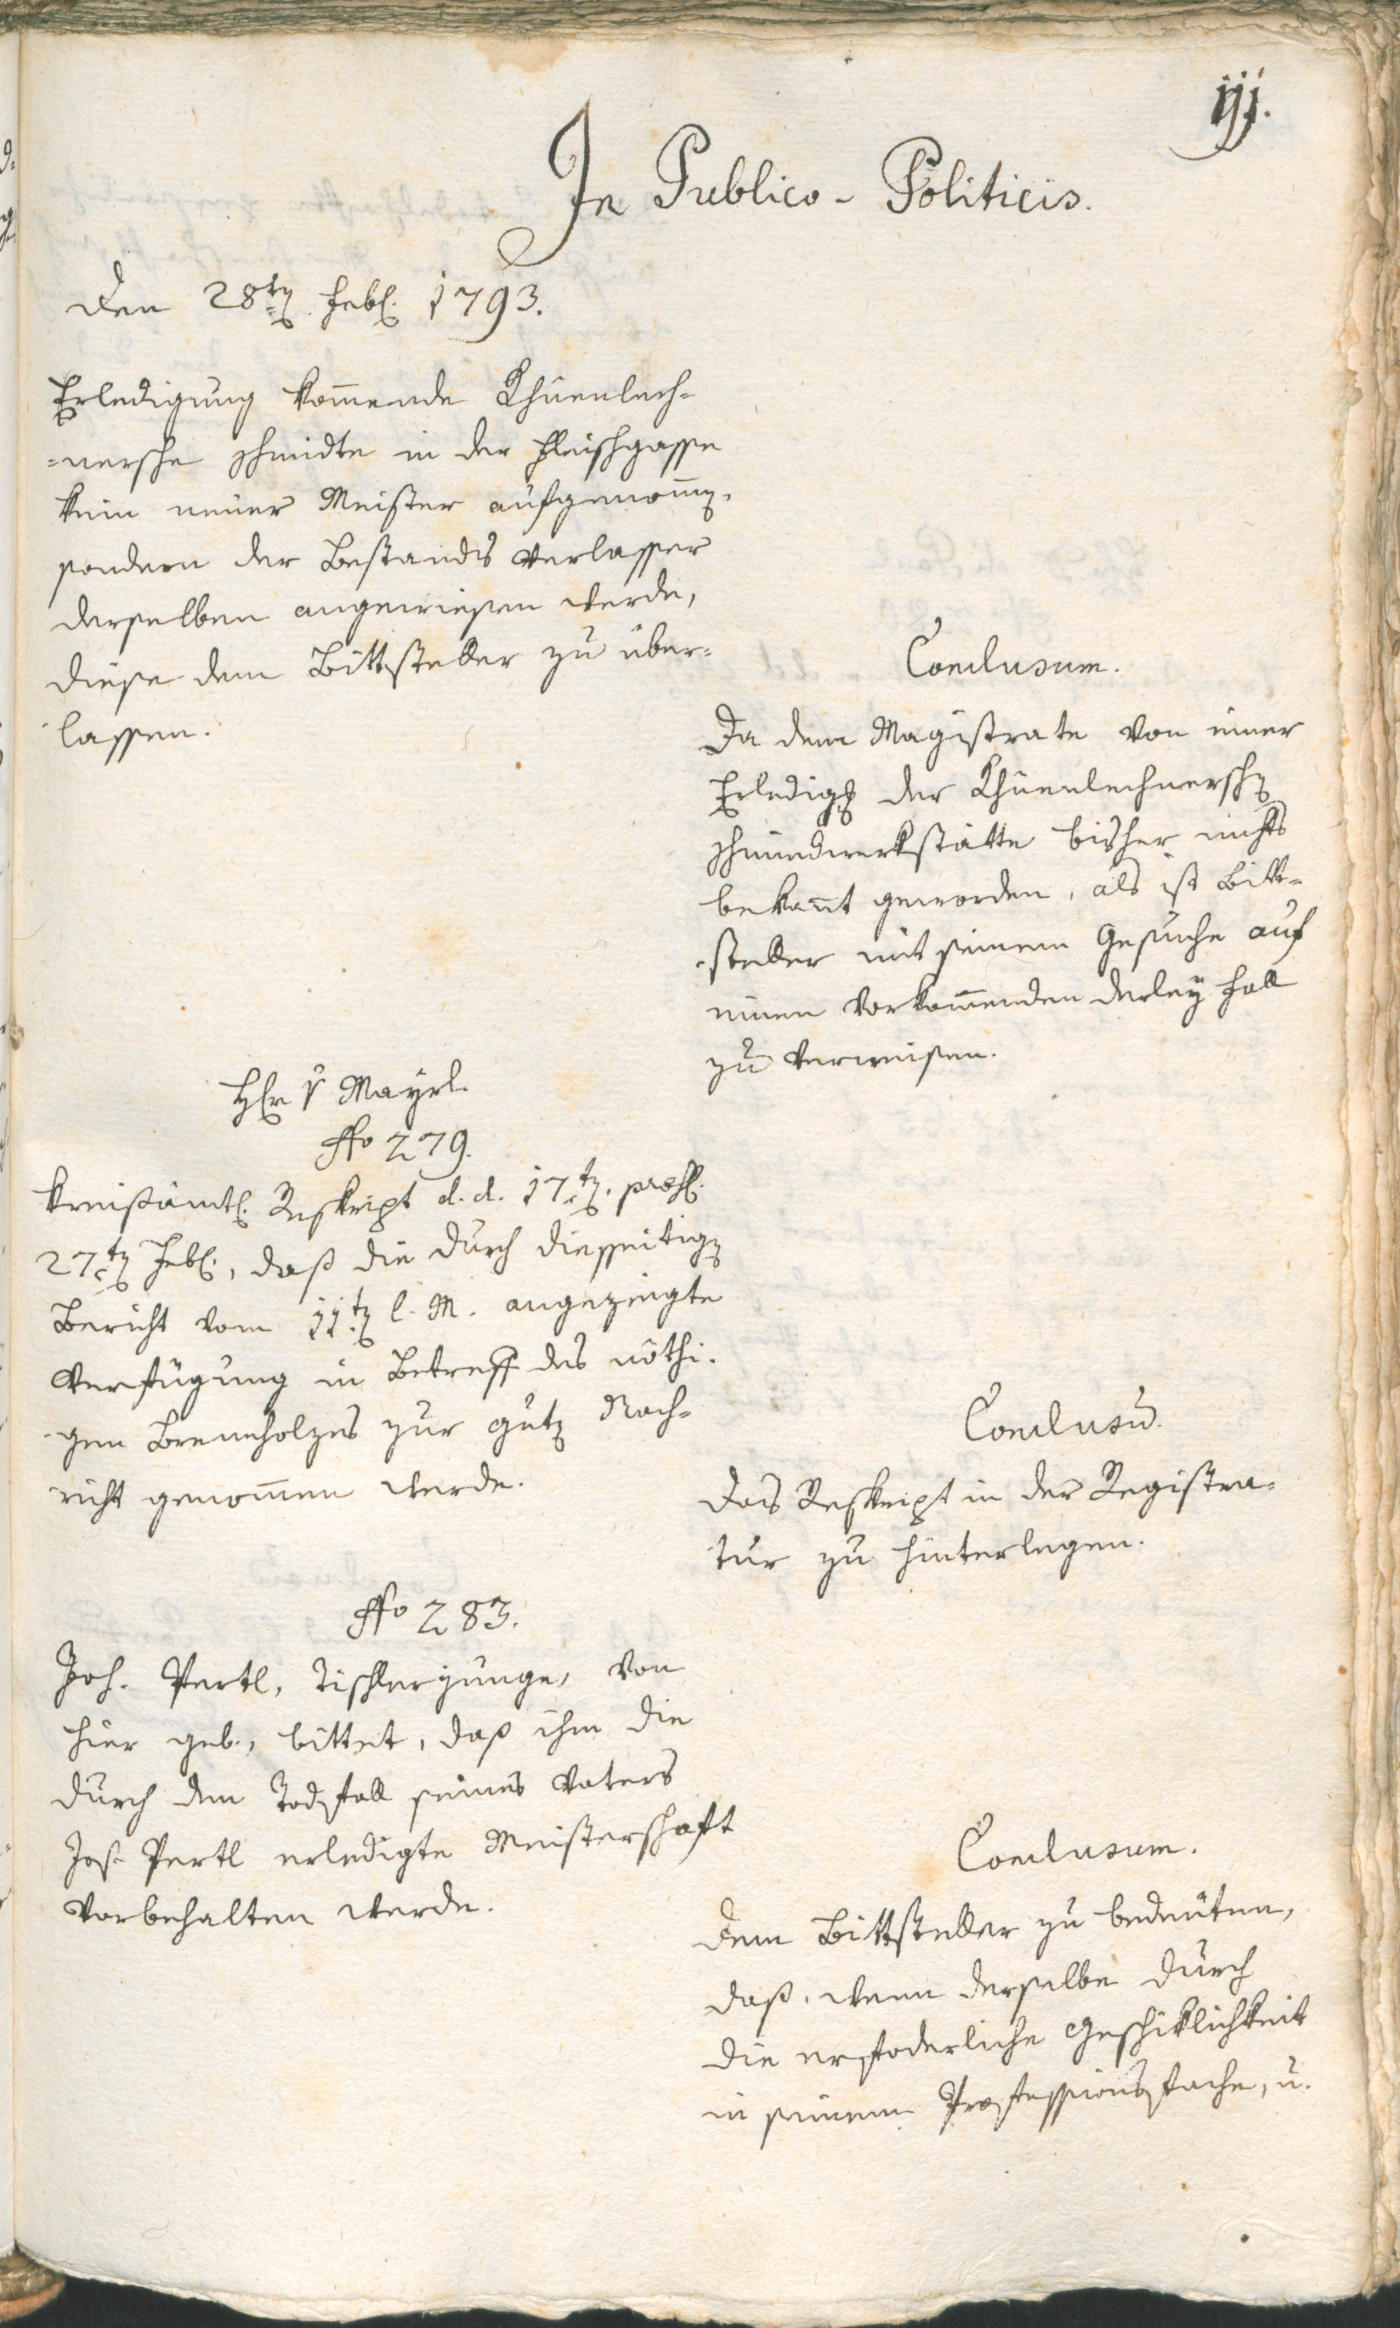 111.
In Publico-Politicis.
Den 28ten Febr. 1793.
Erledigung kom̄ende Khuenlech-
-nersche Schmidte in der Fleischgasse
kein neuer Meister aufgenom̄en,
sondern der Bestands Verlasser
derselben angewiesen werde,
diese dem Bittsteller zu über-
lassen.
Conclusum.
Da dem Magistrate von einer
Erledigg der Khuenlechnerschen
Schmidwerkstätte bisher nichts
bekañt geworden, als ist Bitt-
-steller mit seinem Gesuche auf
einen vorkom̄enden derley Fall
zu verweisen.
Hr v Mayrl.
No 279.
Kreisämtl. Reskript d. d. 17ten. praes.
27ten Febr., daß die durch diesseitigen
Bericht vom 11ten l. M. angezeigte
Verfügung in Betreff des nöthi-
gen Brennholzes zur guten Nach-
richt genom̄en werde.
Conclusū.
Das Reskript in der Registra-
tur zu hinterlegen.
No 283.
Joh. Pertl, Tischlerjunge, von
hier geb., bittet, daß ihm die
durch den Todfall seines Vaters
Jos. Pertl erledigte Meisterschaft
vorbehalten werde.
Conclusum.
Dem Bittsteller zu bedeuten,
daß, wenn derselbe durch
die erfoderliche Geschiklichkeit
in seinem Professionsfache, u.